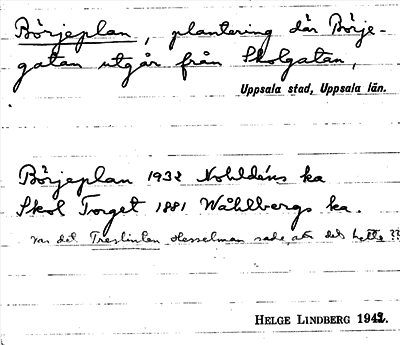 Börjeplan, plantering där Börje-
gatan utgår från Skolgatan,
Uppsala stad, Uppsala län.
Börjeplan 1932 Nohldéns ka
Skol Torget 1881 Wåhlbergs ka.
var det Treslinten Hesselman sade, att det hette ??
HELGE LINDBERG 1942.